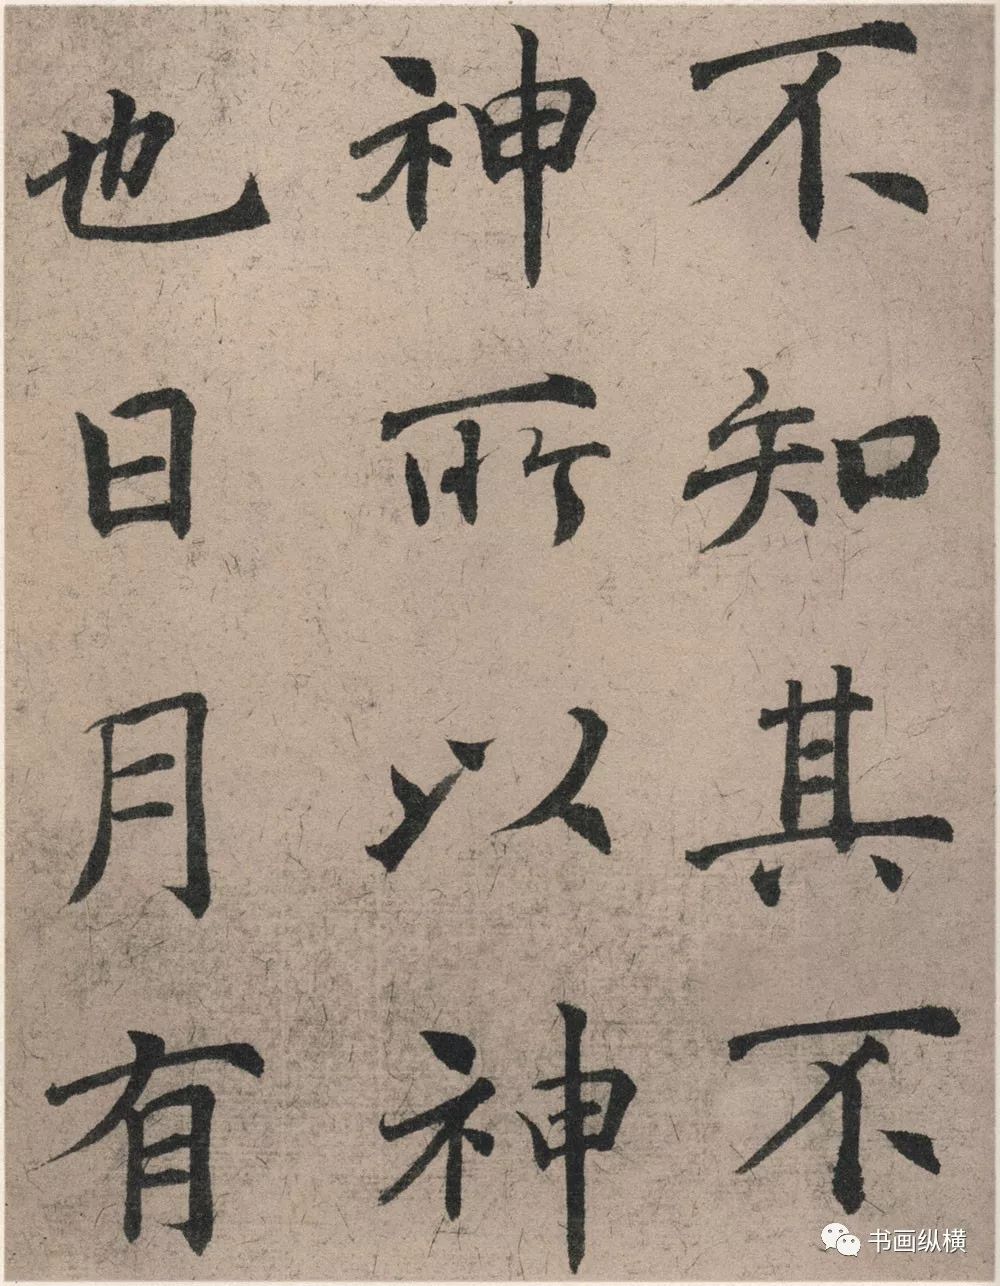 不知其不
神所以神
也日月有
书画纵横